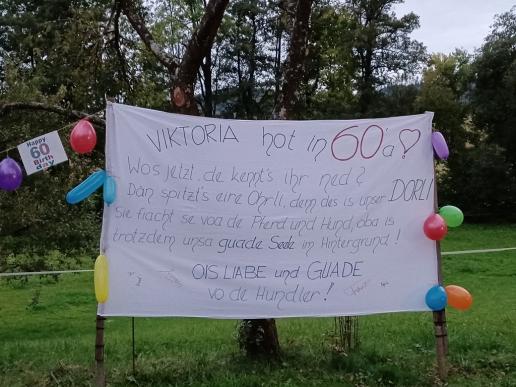 Happy
60
Birth
day
VIKTORIA hot in 60'a!
Wos jetzt, de kennt's ihr ned?
Dan spitzt's eine Öhrli, dem des is unser DORLI
Sie fiacht se voa de Pferd und Hund, oba is
trotzdem unsa guade Sede im Hintergrund!
OIS LIABE und GUADE
vo de Hundler!